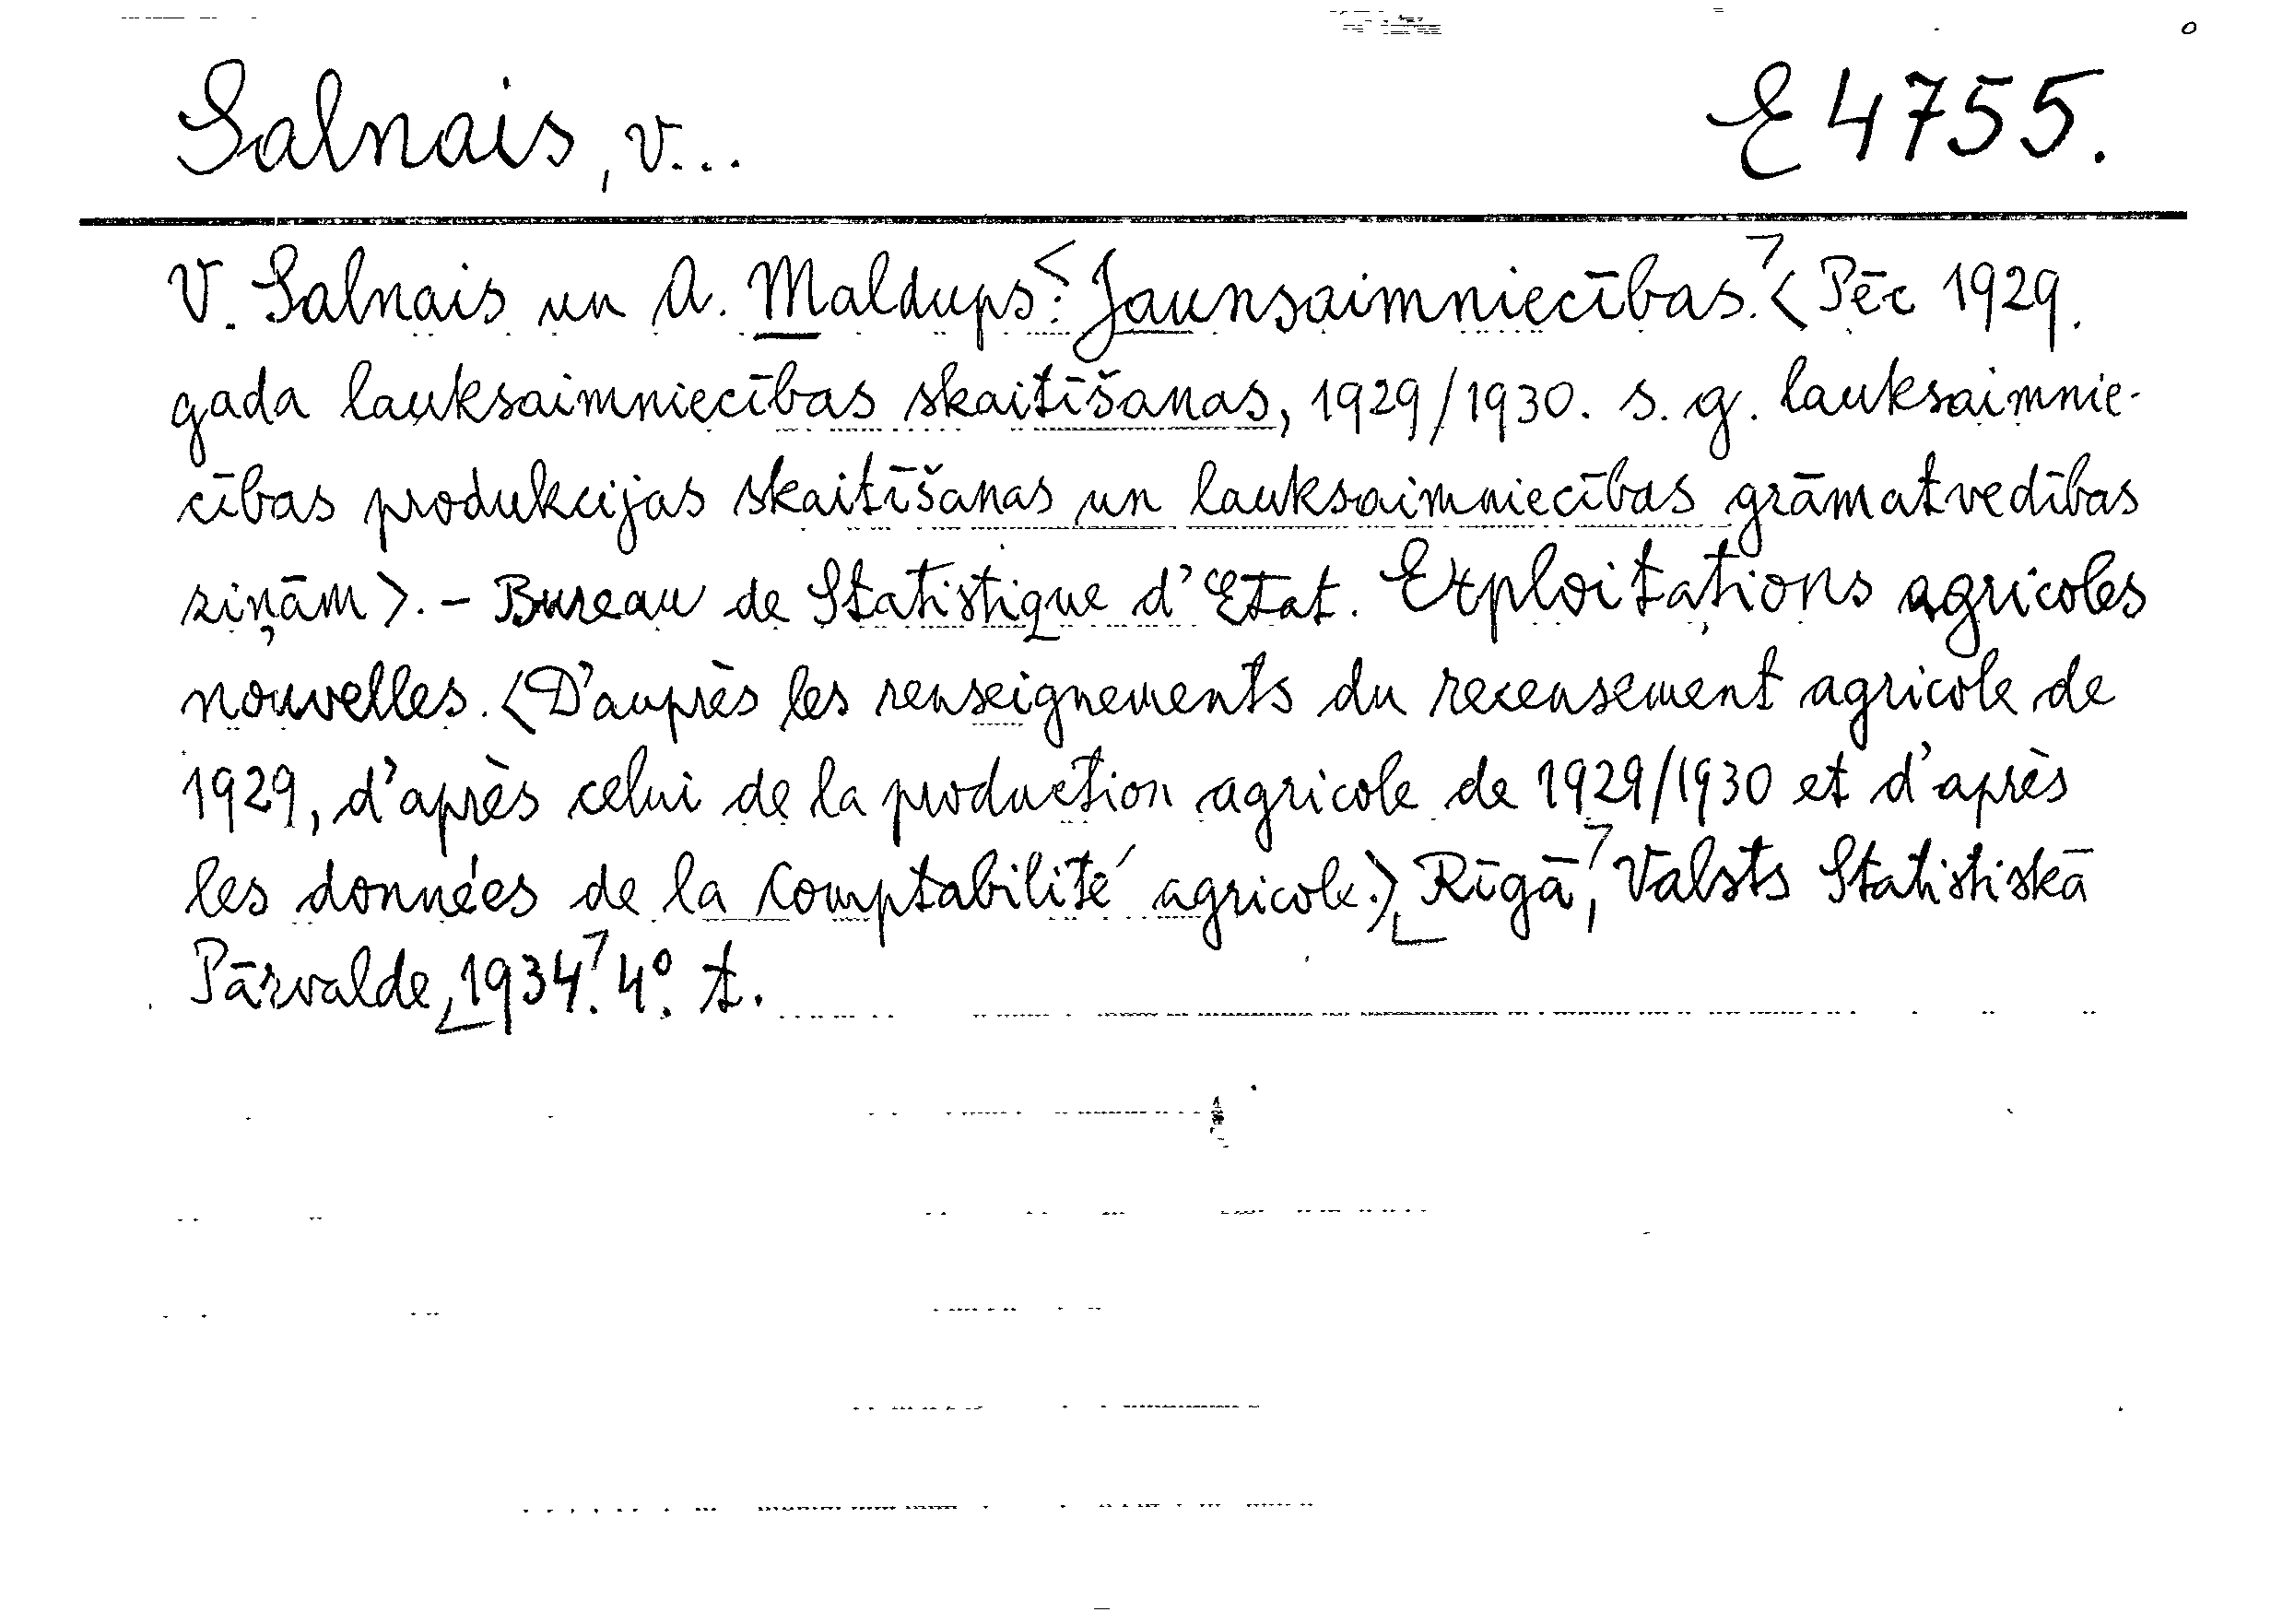 Salnais, V... E 4755.
V. Salnais un A. Maldups: Jaunsaimniecības. < Pēc 1929.
gada lauksaimniecības skaitīšanas, 1929/1930. s. g. lauksaimnie-
cības produkcijas skaitīšanas un lauksaimniecības grāmatvedības
ziņām >. - Bureau de Statistique d'Etat. Exploitations agricoles
nouvelles. < D'auprès les renseignements du recensement agricole de
1929, d'après celui de la production agricole de 1929/1930 et d'après
les données de la comptabilité agricole.> Rīgā, Valsts Statistiskā
Pārvalde, 1934. 4°. t.